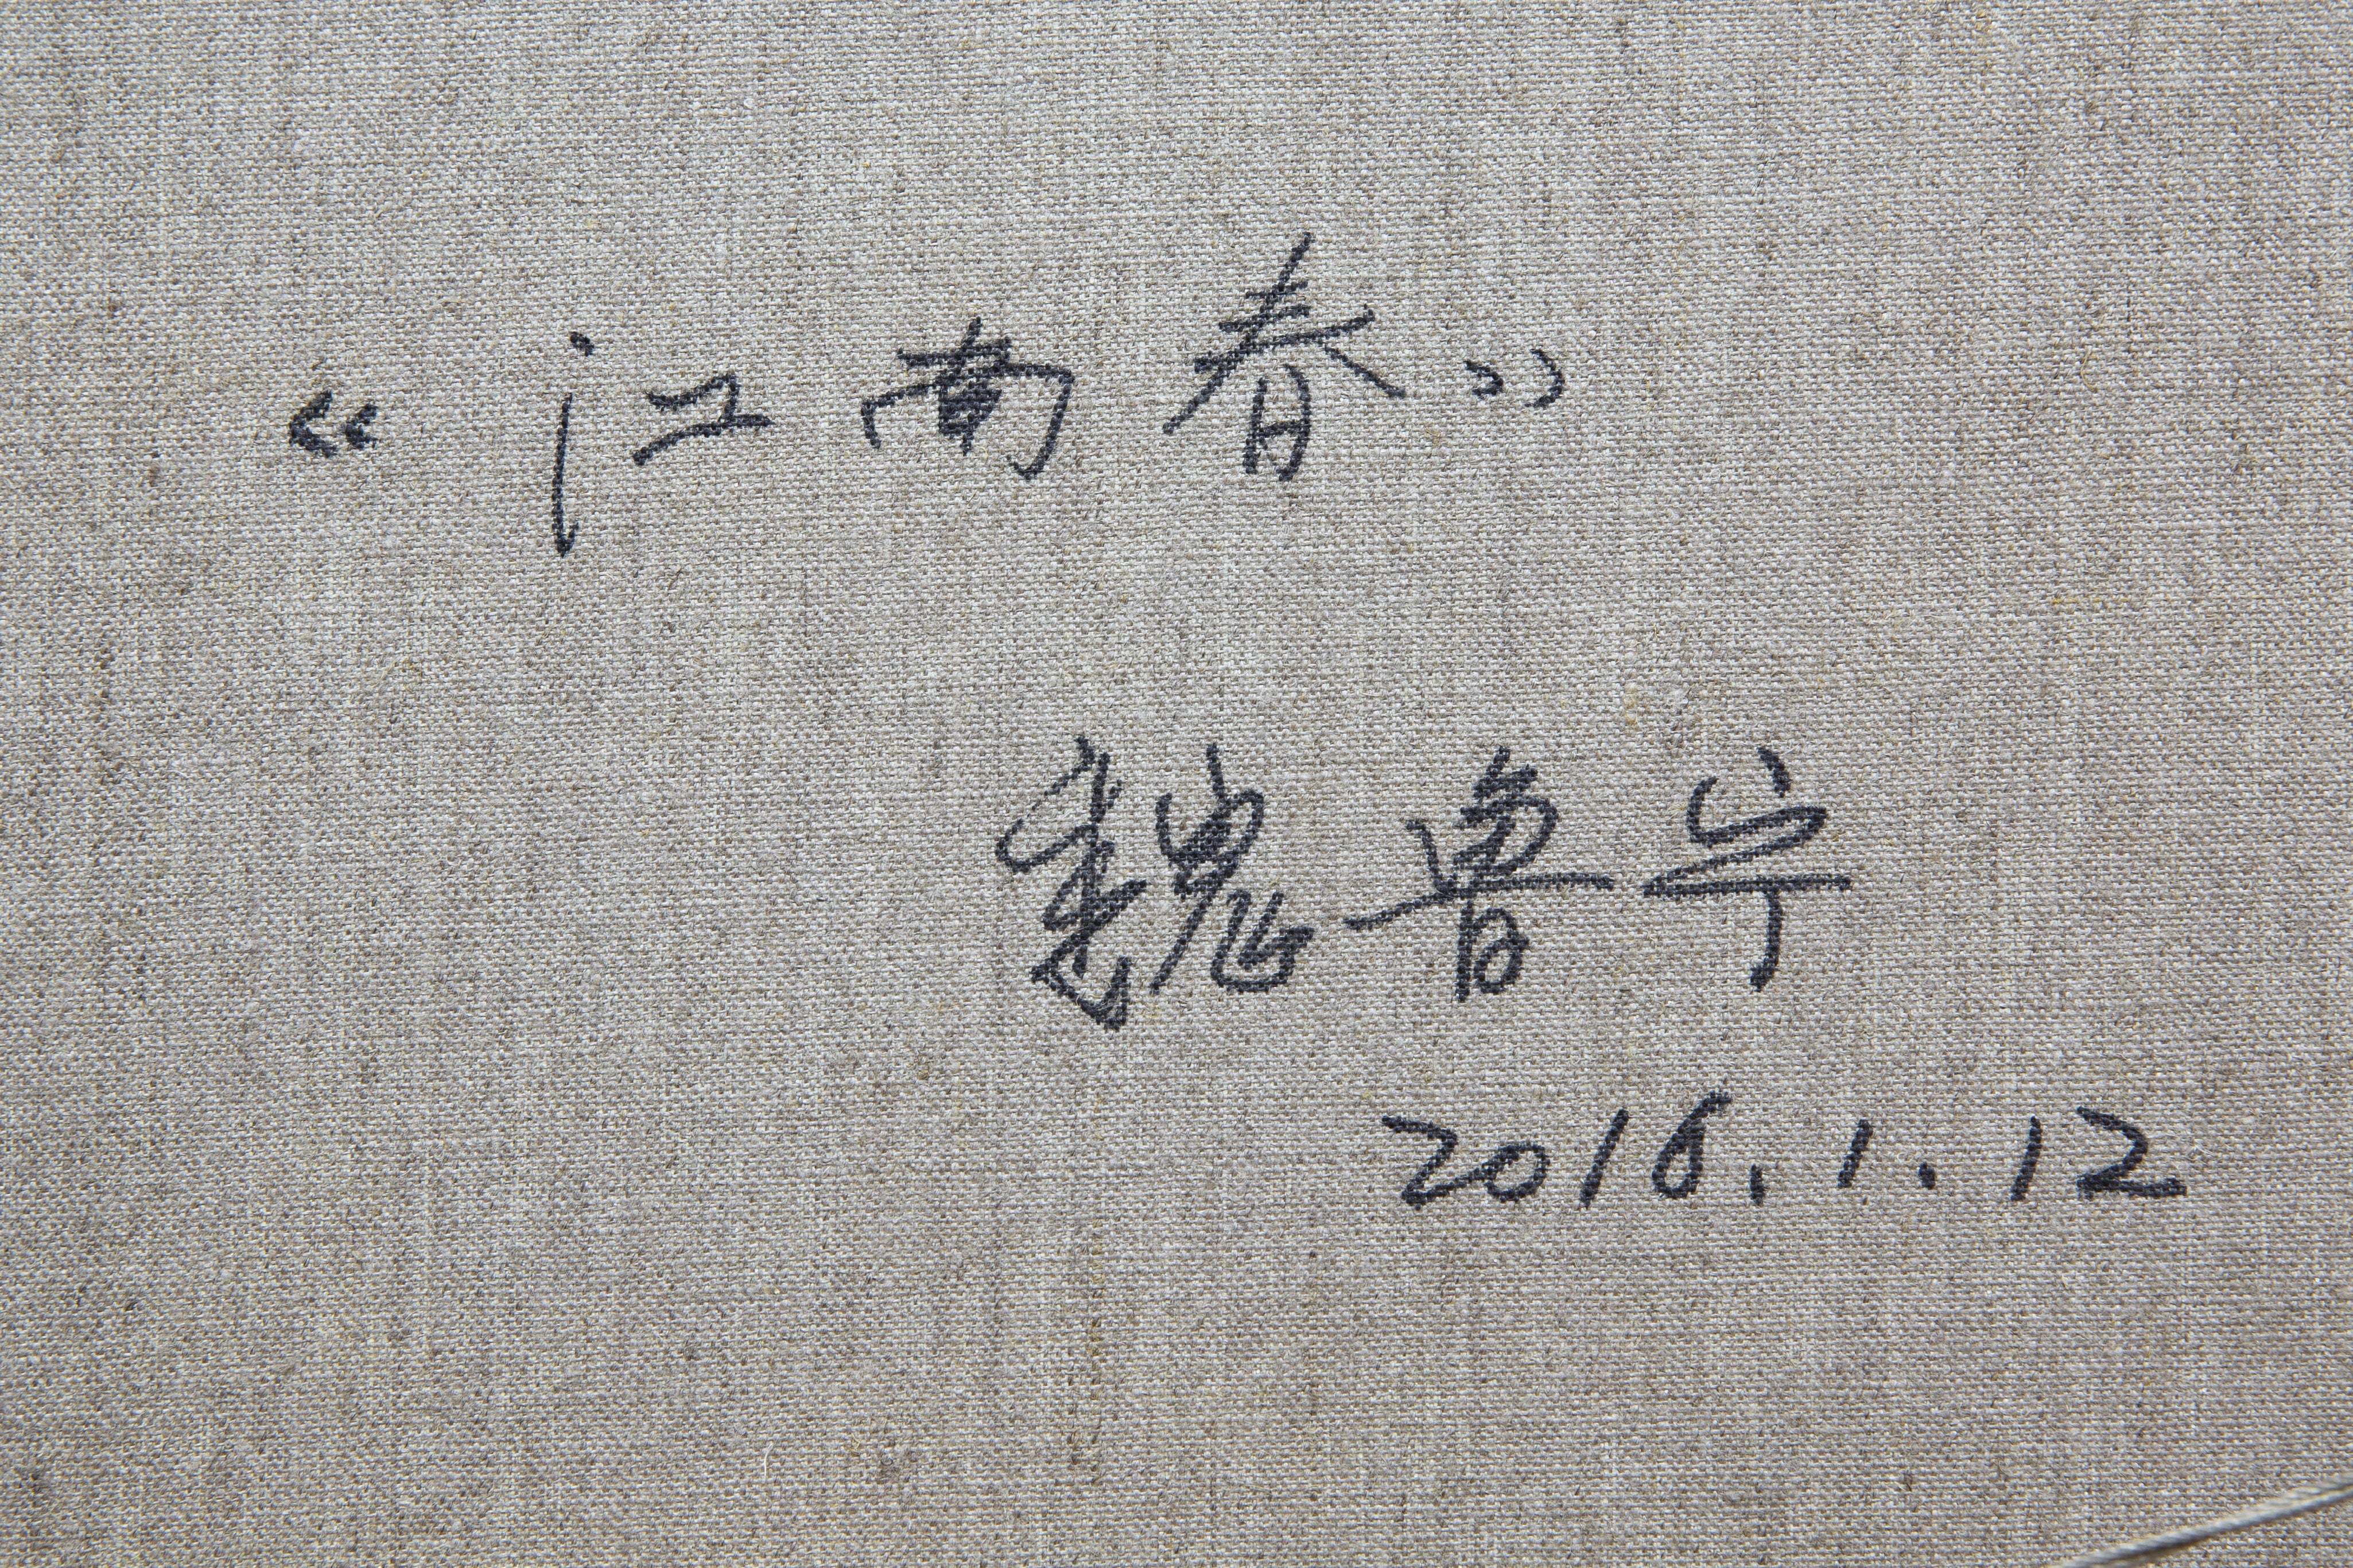 “江南春”
魏鲁宁
2016.1.12